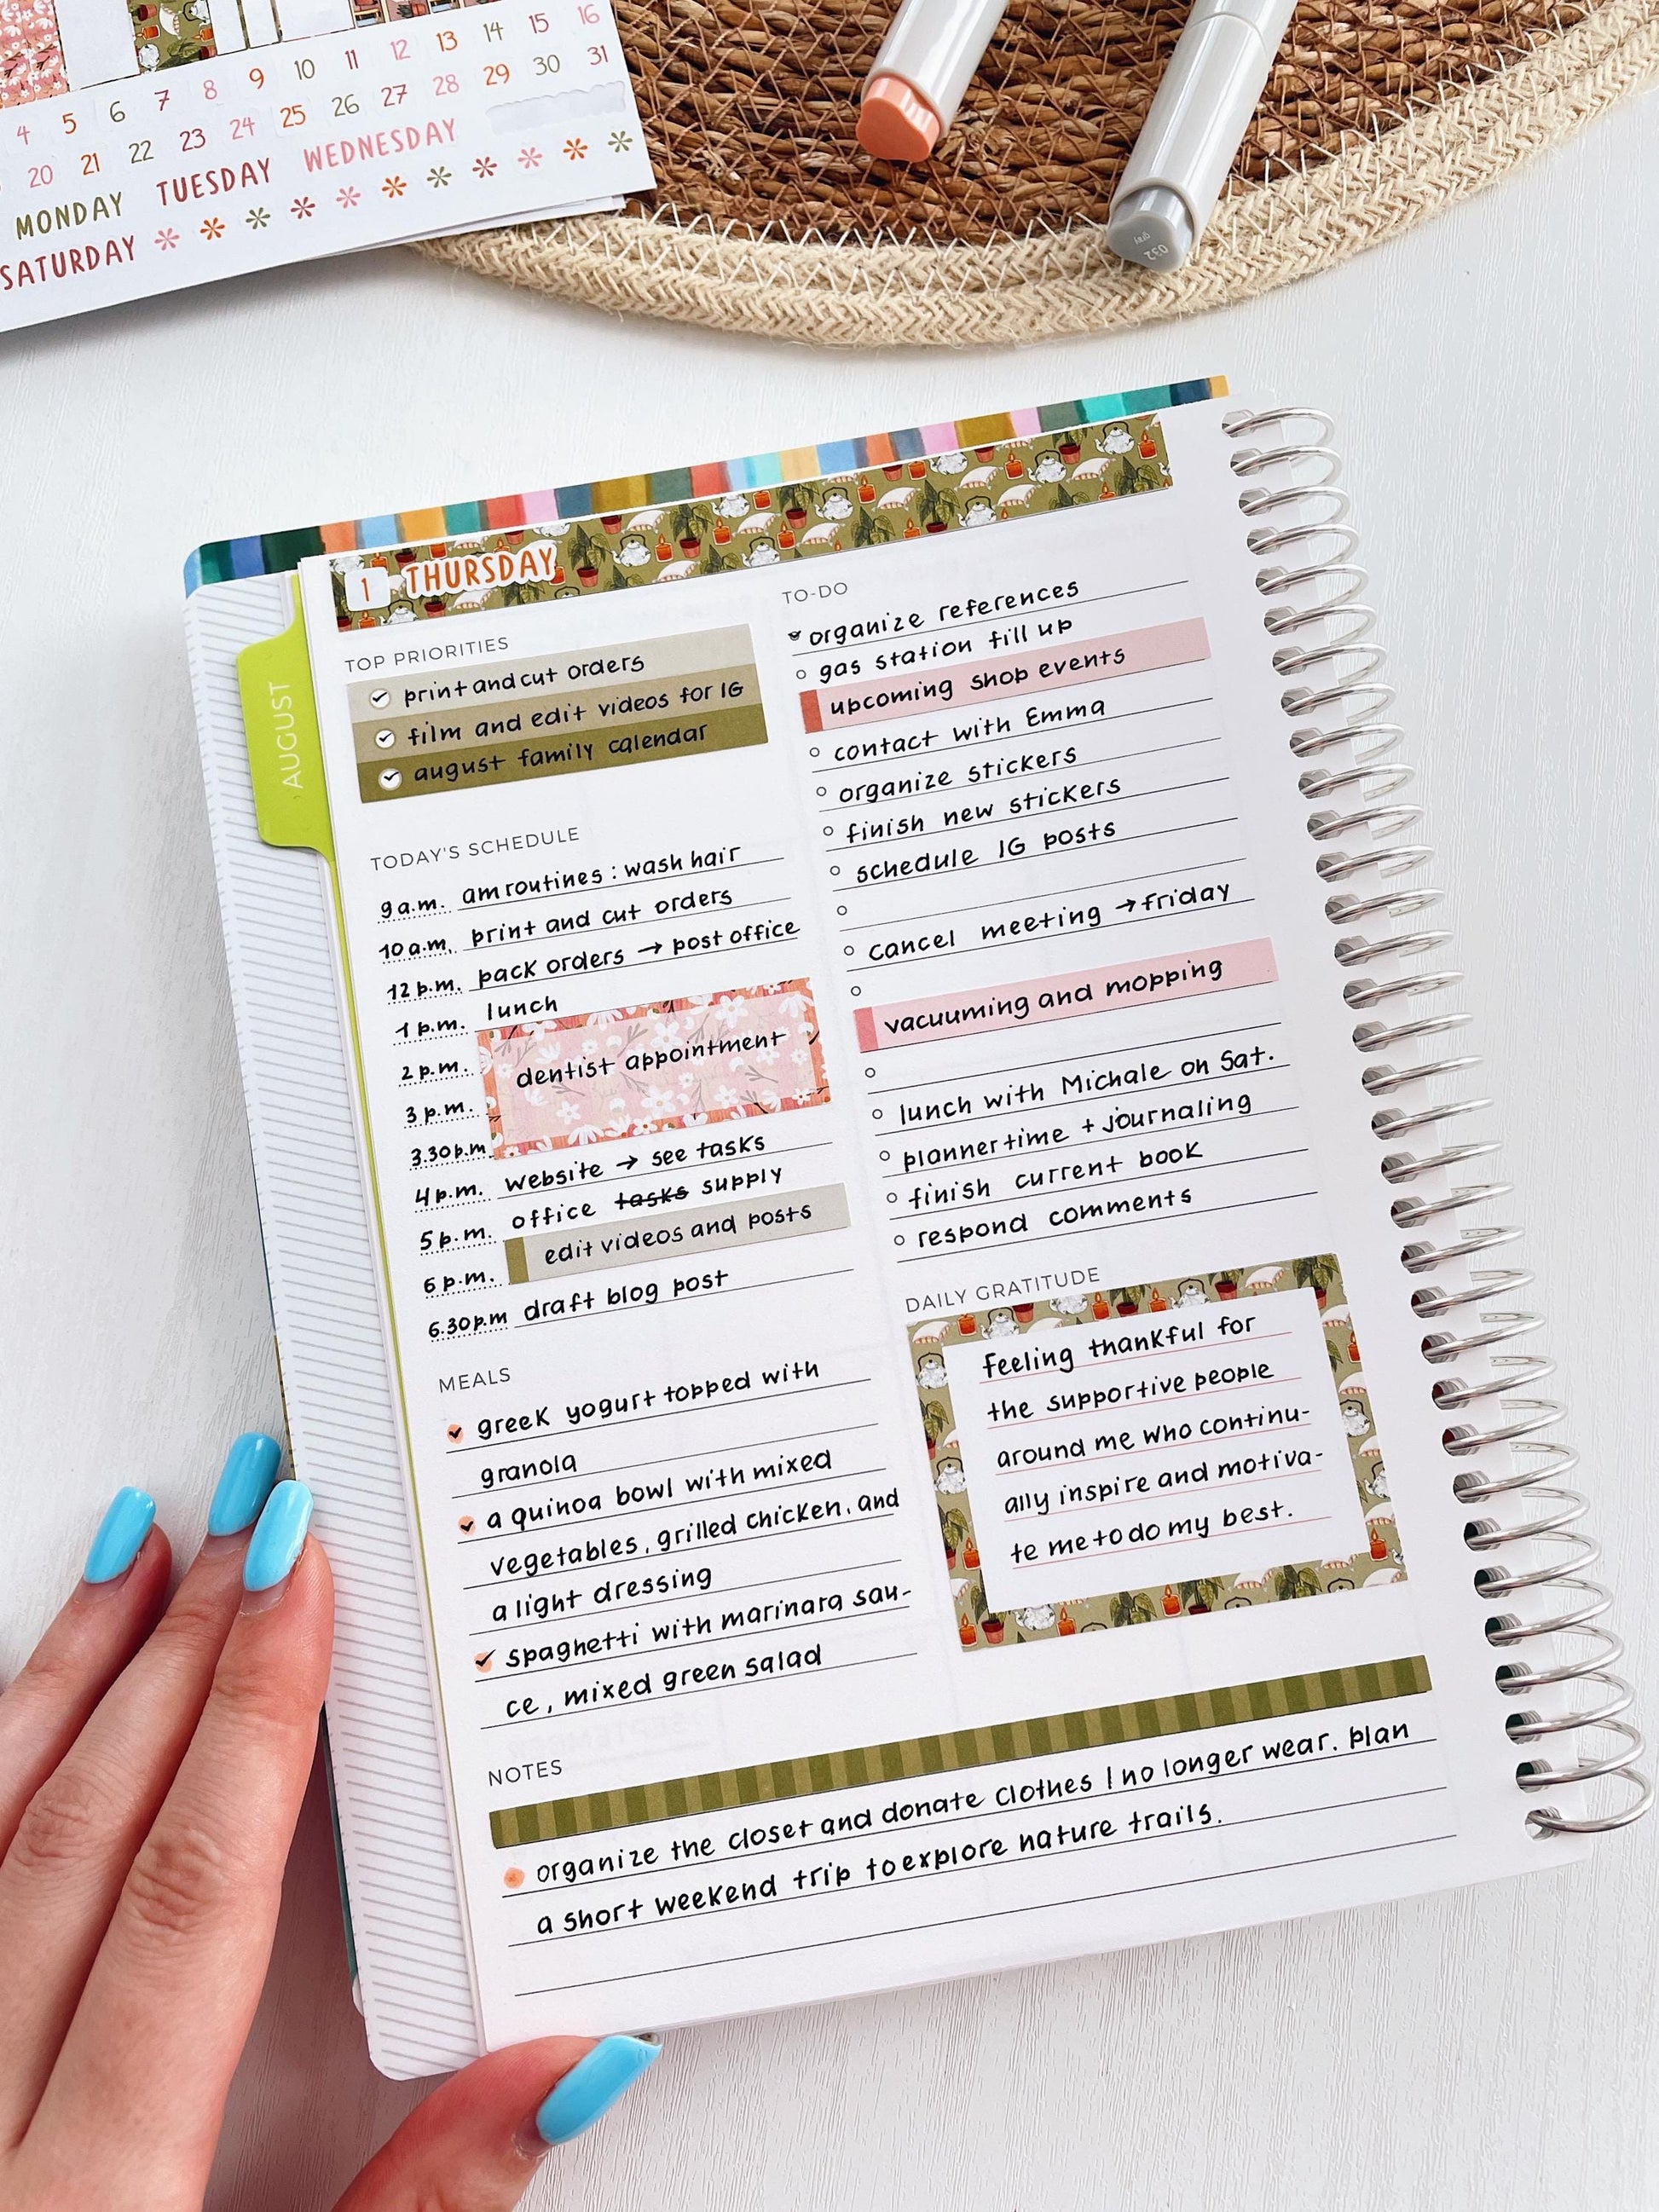 8 9 10 11 12 13 14 15 16
4 5 6 7
20 21 22 23 24 25 26 27 28 29 30 31
MONDAY TUESDAY WEDNESDAY
SATURDAY
032
AUGUST
1 THURSDAY
TOP PRIORITIES
print and cut orders
film and edit videos for IG
august family calendar
TODAY'S SCHEDULE
9 a.m. am routines: wash hair
10 a.m. print and cut orders
12 p.m. pack orders → post office
1 p.m. lunch
2 p.m. dentist appointment
3 p.m.
3.30 p.m.
4 p.m. website → see tasks
5 p.m. office tasks supply
6 p.m. edit videos and posts
6.30 p.m draft blog post
MEALS
greek yogurt topped with
granola
a quinoa bowl with mixed
vegetables, grilled chicken, and
a light dressing
spaghetti with marinara sau-
ce, mixed green salad
TO-DO
organize references
gas station fill up
upcoming shop events
contact with Emma
organize stickers
finish new stickers
schedule IG posts
cancel meeting → friday
vacuuming and mopping
lunch with Michale on Sat.
planner time + journaling
finish current book
respond comments
DAILY GRATITUDE
feeling thankful for
the supportive people
around me who continu-
ally inspire and motiva-
te me to do my best.
NOTES
organize the closet and donate clothes I no longer wear. plan
a short weekend trip to explore nature trails.